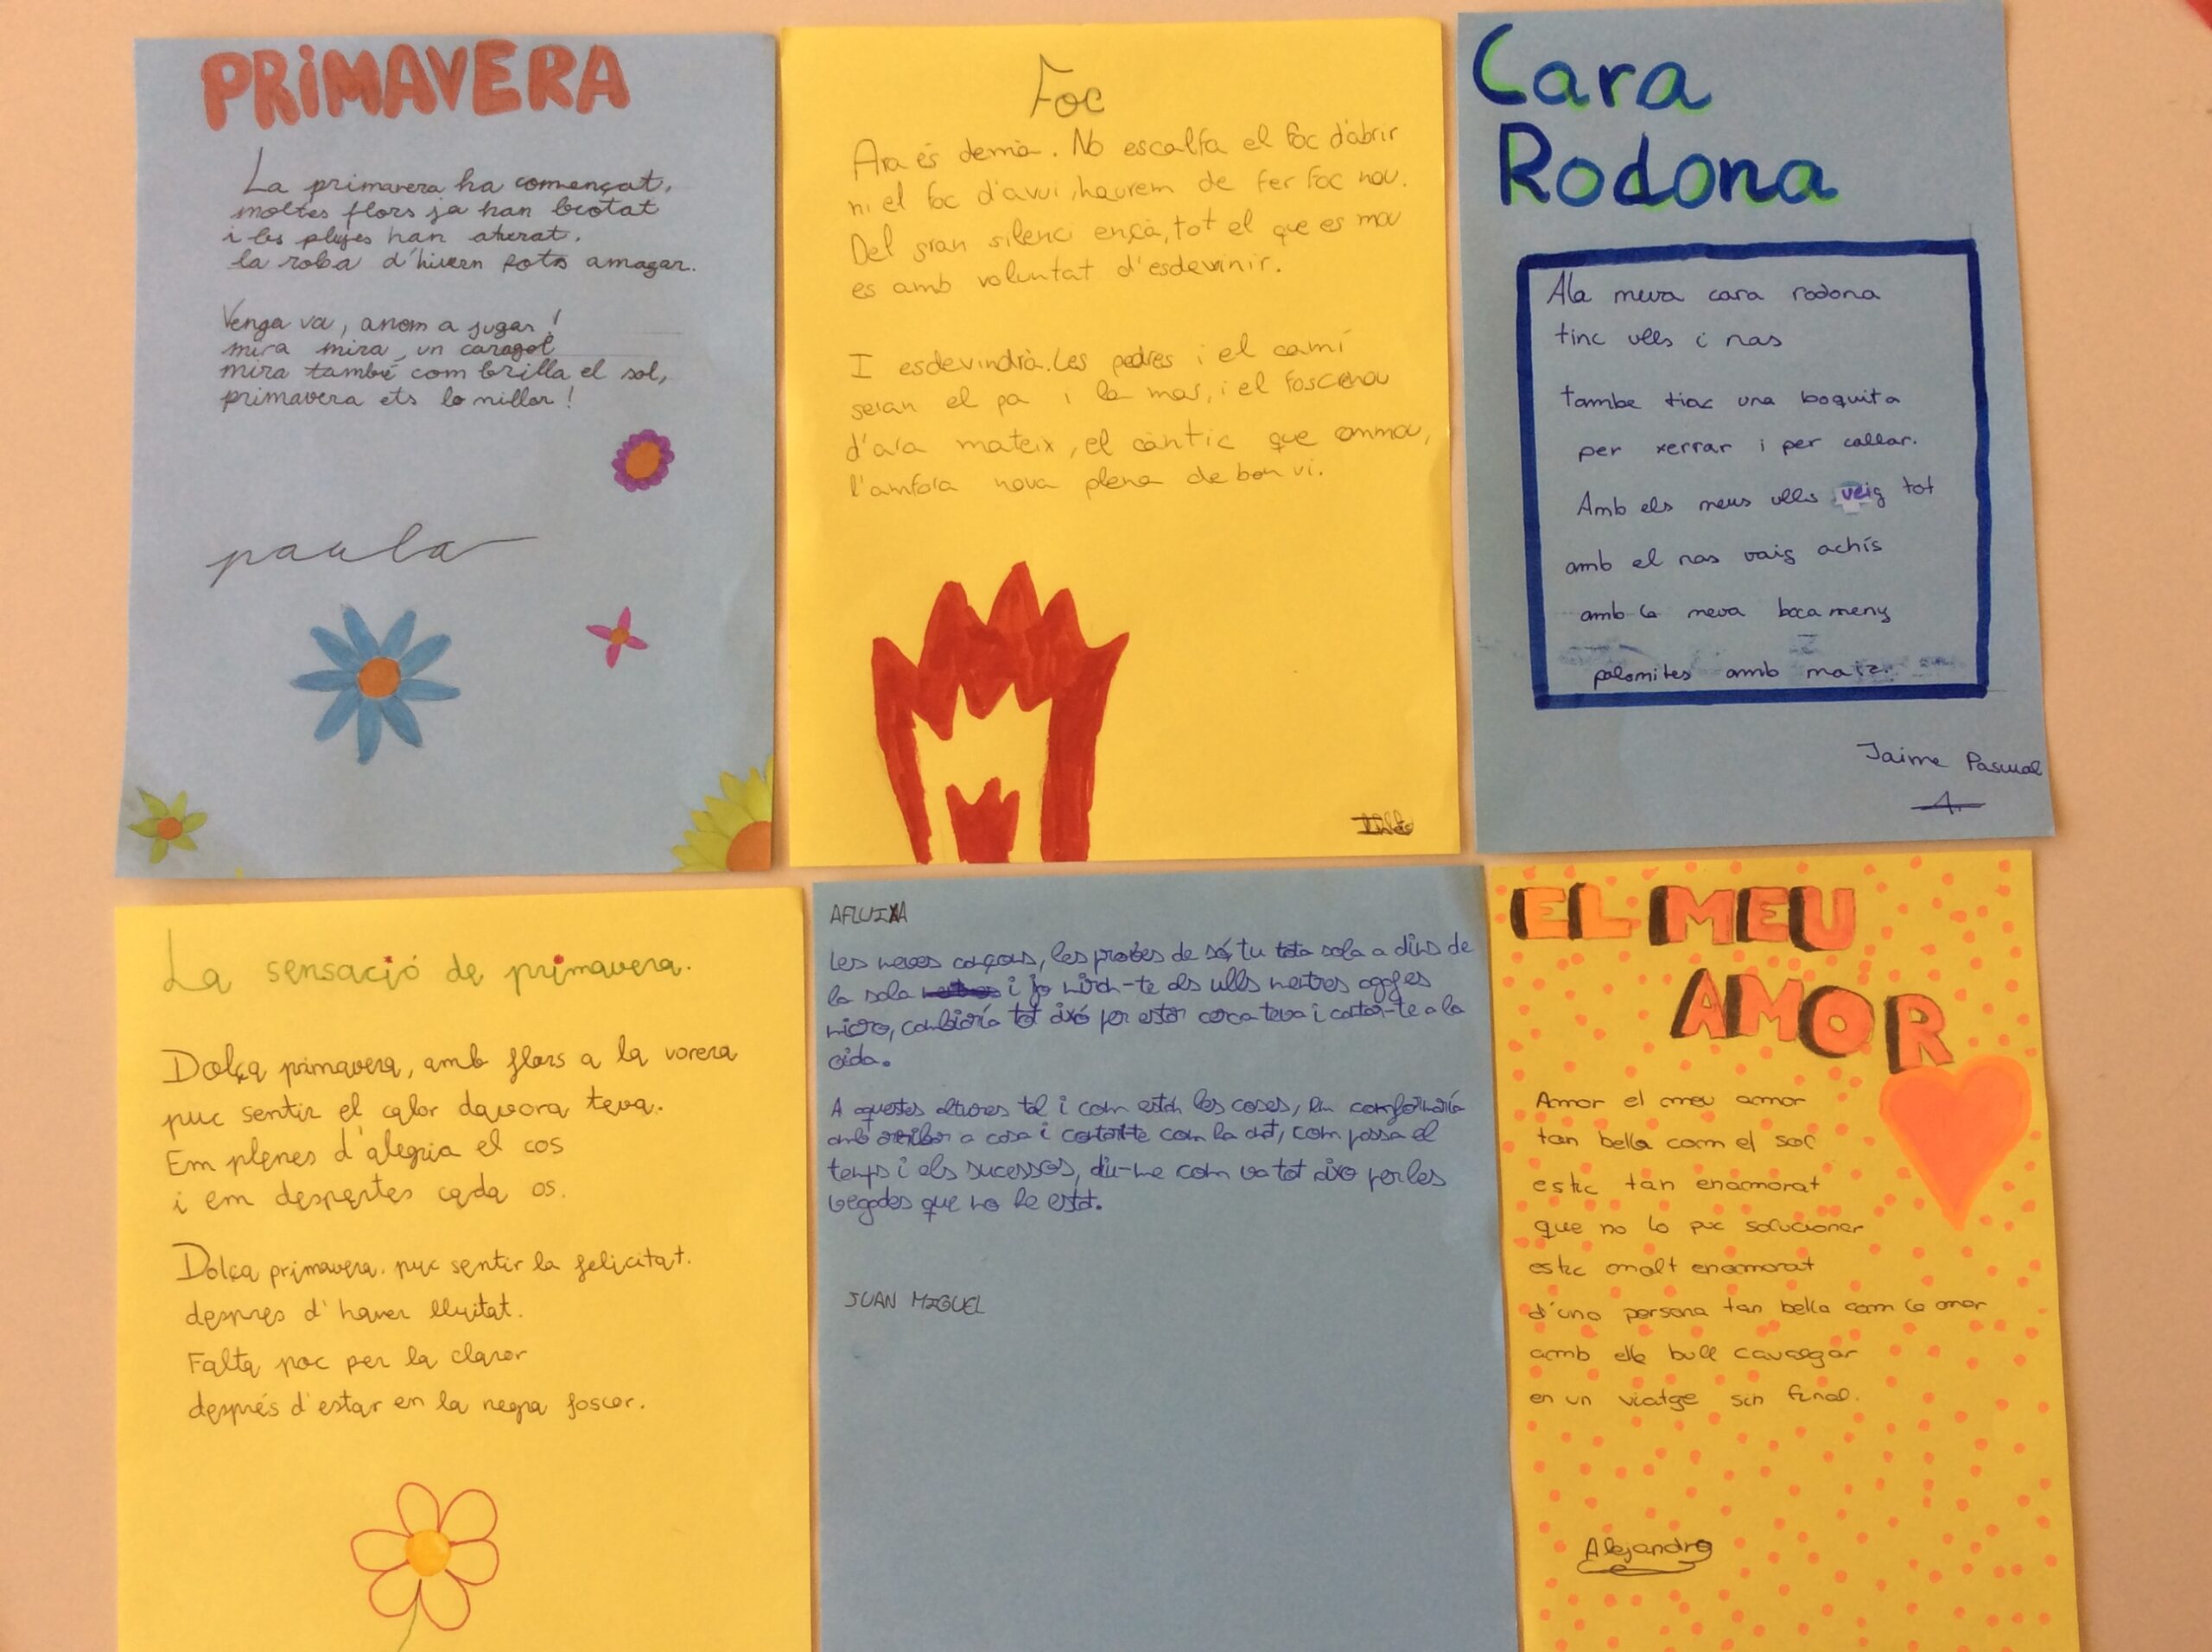 PRiMAVERA
La primavera ha començat,
moltes flors ja han brotat
i les pluges han aturat,
la roba d'hivern pots amagar.
Venga va, anem a jugar!
mira mira, un caragol
mira també com brilla el sol,
primavera ets lo millor!
paula
Foc
Ara és demà. No escalfa el foc d'abrir
ni el foc d'avui, haurem de fer foc nou.
Del gran silenci ençà, tot el que es mou
es amb voluntat d'esdevinir.
I esdevindrà. Les pedres i el camí
seran el pa i la mar, i el fosc nou
d'ara mateix, el càntic que commou,
l'amfora nova plena de bon vi.
Cara
Rodona
Ala meva cara rodona
tinc ulls i nas
tambe tinc una boquita
per xerrar i per callar.
Amb els meus ulls veig tot
amb el nas vaig achís
amb la meva boca meny
palomites amb maiz.
Jaime Pascual
A.
La sensació de primavera.
Dolça primavera, amb flors a la vorera
puc sentir el calor davora teva.
Em plenes d'alegria el cos
i em despertes cada os.
Dolça primavera. puc sentir la felicitat.
despres d'haver lluitat.
Falta poc per la claror
després d'estar en la negra foscor.
AFLUIXA
Les meves cançons, les proves de só, tu tota sola a dins de
la sala i jo mirch-te als ulls mentres agafes
micro, cambiaría tot aixó per estar cerca teva i cantar-te a la
oida.
A aquestes altures tal i com estan les coses, em conformaría
amb arribar a casa i contarte com ha anat, com passa el
temps i els sucessos, diu-me com va tot aixo per les
vegades que no he estat.
JUAN MIGUEL
EL MEU
AMOR
Amor el meu amor
tan bella com el sol
estic tan enamorat
que no lo puc solucionar
estic molt enamorat
d'una persona tan bella com la mar
amb ella bull cavalgar
en un viatge sin final.
Alejandro